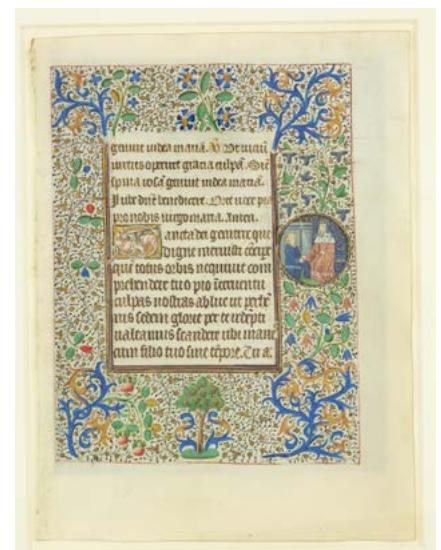 genuit iudea mariā. V Vt viciū
virtus operiret gracia culpā. Sic̄
spina rosā genuit iudea mariā.
Iube dn̄e benedicere. Oret voce pia
pro nobis virgo maria. Amen.
Sancta dei genitrix que
digne meruisti cōcipe
quē totus orbis nequiuit com
prehendere tuo pio
culpas nostras ablue ut perhē
nis sedem glorie per te redēpti
valeamus scandere vbi manes
cum filio tuo sine tēpore. Tu a